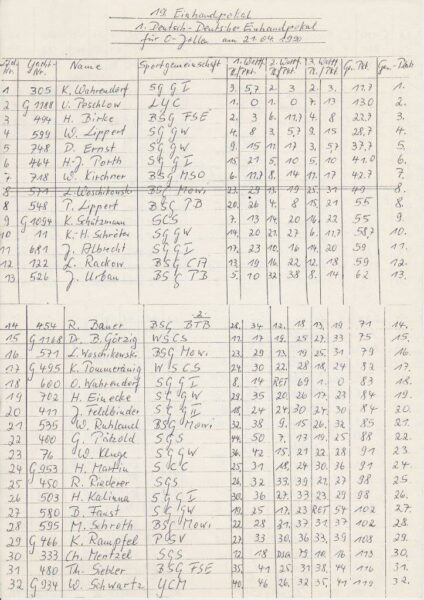 19. Einhandpokal
1. Deutsch-Deutscher Einhandpokal
für O-Jollen am 21.04.1990
Lfd. Nr. Yacht-Nr. Name Sportgemeinschaft 1. Wettf. Pl./Pkt. 2. Wettf. Pl./Pkt. 3. Wettf. Pl./Pkt. Ges. Pkt. Ges.-Platz
1 305 K. Wahrendorf SGGI 9. 5,7 2. 3 2. 3. 11.7 1.
2 G 1188 U. Poschlow LYC 1. 0 1. 0 7. 13 13.0 2.
3 494 H. Birke BSG FSE 2. 3 6. 11.7 4. 8 22.7 3.
4 599 W. Lippert SGGW 4. 8 3. 5.7 9. 15 28,7 4.
5 248 D. Ernst SGGW 9. 15 11. 17 3. 5.7 37.7 5.
6 464 H.-J. Porth SGGI 15 21 5. 10 5. 10 41.0 6.
7 718 W. Kirchner BSG MSO 6. 11.7 8. 14 11. 17 42.7 7.
8 571 L. Woschikowski BSG Mowi 23. 29 13. 19 25. 31 8.
8 548 T. Lippert BSG TB 20. 26 4. 8 15. 21 55 8.
9 G 1094 K. Schützmann SCS 7. 13 14. 20 16. 22 55 9.
10 11 K.-H. Schröter SGGW 14. 20 21. 27 6. 11.7 58,7 10.
11 681 J. Albrecht SGGI 17. 23 10. 16 14. 20 59 11.
12 122 L. Rackow BSG CA 13. 19 16. 22 12. 18 59 12.
13 526 J. Urban BSG TB 5. 10 32. 38 8. 14 62 13.
-2-
14 454 R. Bauer BSG BTB 28. 34 12. 18 13. 19 71 14.
15 G 1168 Dr. B. Görzig WSCS 11. 17 19. 25 27. 33 75 15.
16 571 L. Woschikowski BSG Mowi 23. 29 13. 19 25. 31 79 16.
17 G 495 K. Pommeränig WSCS 24. 30 22. 28 18. 24 82 17.
18 600 O. Wahrendorf SGGI 8. 14 RET 69 1. 0 83 18.
19 702 H. Einecke SGGW 29. 35 20. 26 17. 23 84 19.
20 411 J. Feldbinder SGGI 18. 24 24. 30 24. 30 84 20.
21 535 W. Ruhland BSG Mowi 32. 38 9. 15 26. 32 85 21.
22 400 G. Pätzold SGS 44. 50 7. 13 19. 25 88 22.
23 76 W. Kluge SGGW 36. 42 15. 21 22. 28 91 23.
24 G 953 H. Martin SCC 25. 31 18. 24 30. 36 91 24.
25 450 R. Riederer SGS 26. 32 33. 39 21. 27 98 25.
26 503 H. Kalinna SGGI 30. 36 27. 33 23. 29 98 26.
27 580 B. Faust SGGW 19. 25 17. 23 RET 54 102. 27.
28 595 M. Schroth BSG Mowi 22. 28 31. 37 31. 37 102. 28.
29 G 466 K. Rampfel PSV 27. 33 30. 36 33. 39 108 29.
30 333 Ch. Mentzel SGS 12. 18 DSQ 79 10. 16 113 30.
31 480 Th. Siebler BSG FSE 35. 41 25. 31 38. 44 116 31.
32 G 934 W. Schwartz YCM 40. 46 26. 32 35. 41 119 32.